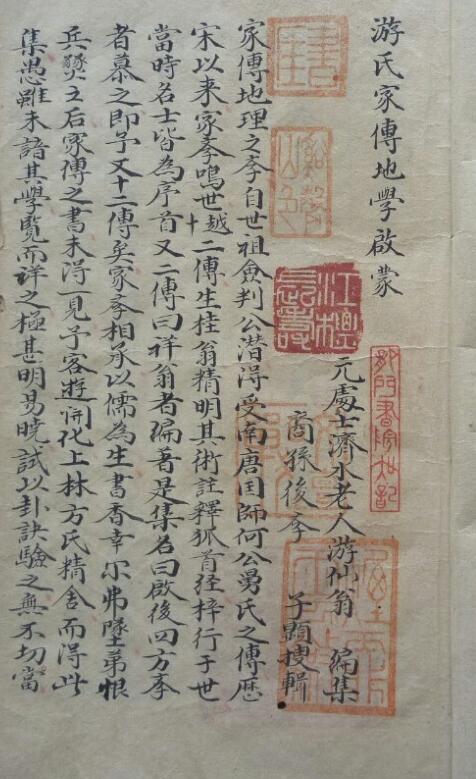 游氏家傳地學啟蒙
元處士濟水老人游仙翁 編集
裔孫後斈 子顯搜輯
家傳地理之斈自世祖僉判公潛得受南唐国師何公勇氏之傳歷
宋以來家斈鳴世越十二傳生桂翁精明其術註釋狐首経梓行于世
當時名士皆為序首又二傳曰祥翁者編著是集名曰啟後四方斈
者慕之即予又十二傳矣家斈相承以儒為生書香幸尔弗墜苐恨
兵燹之后家傳之書未得一見予客遊開化上林方氏精舍而得此
集愚雖未諳其學覽而詳之極甚明易曉試以卦訣驗之無不切當